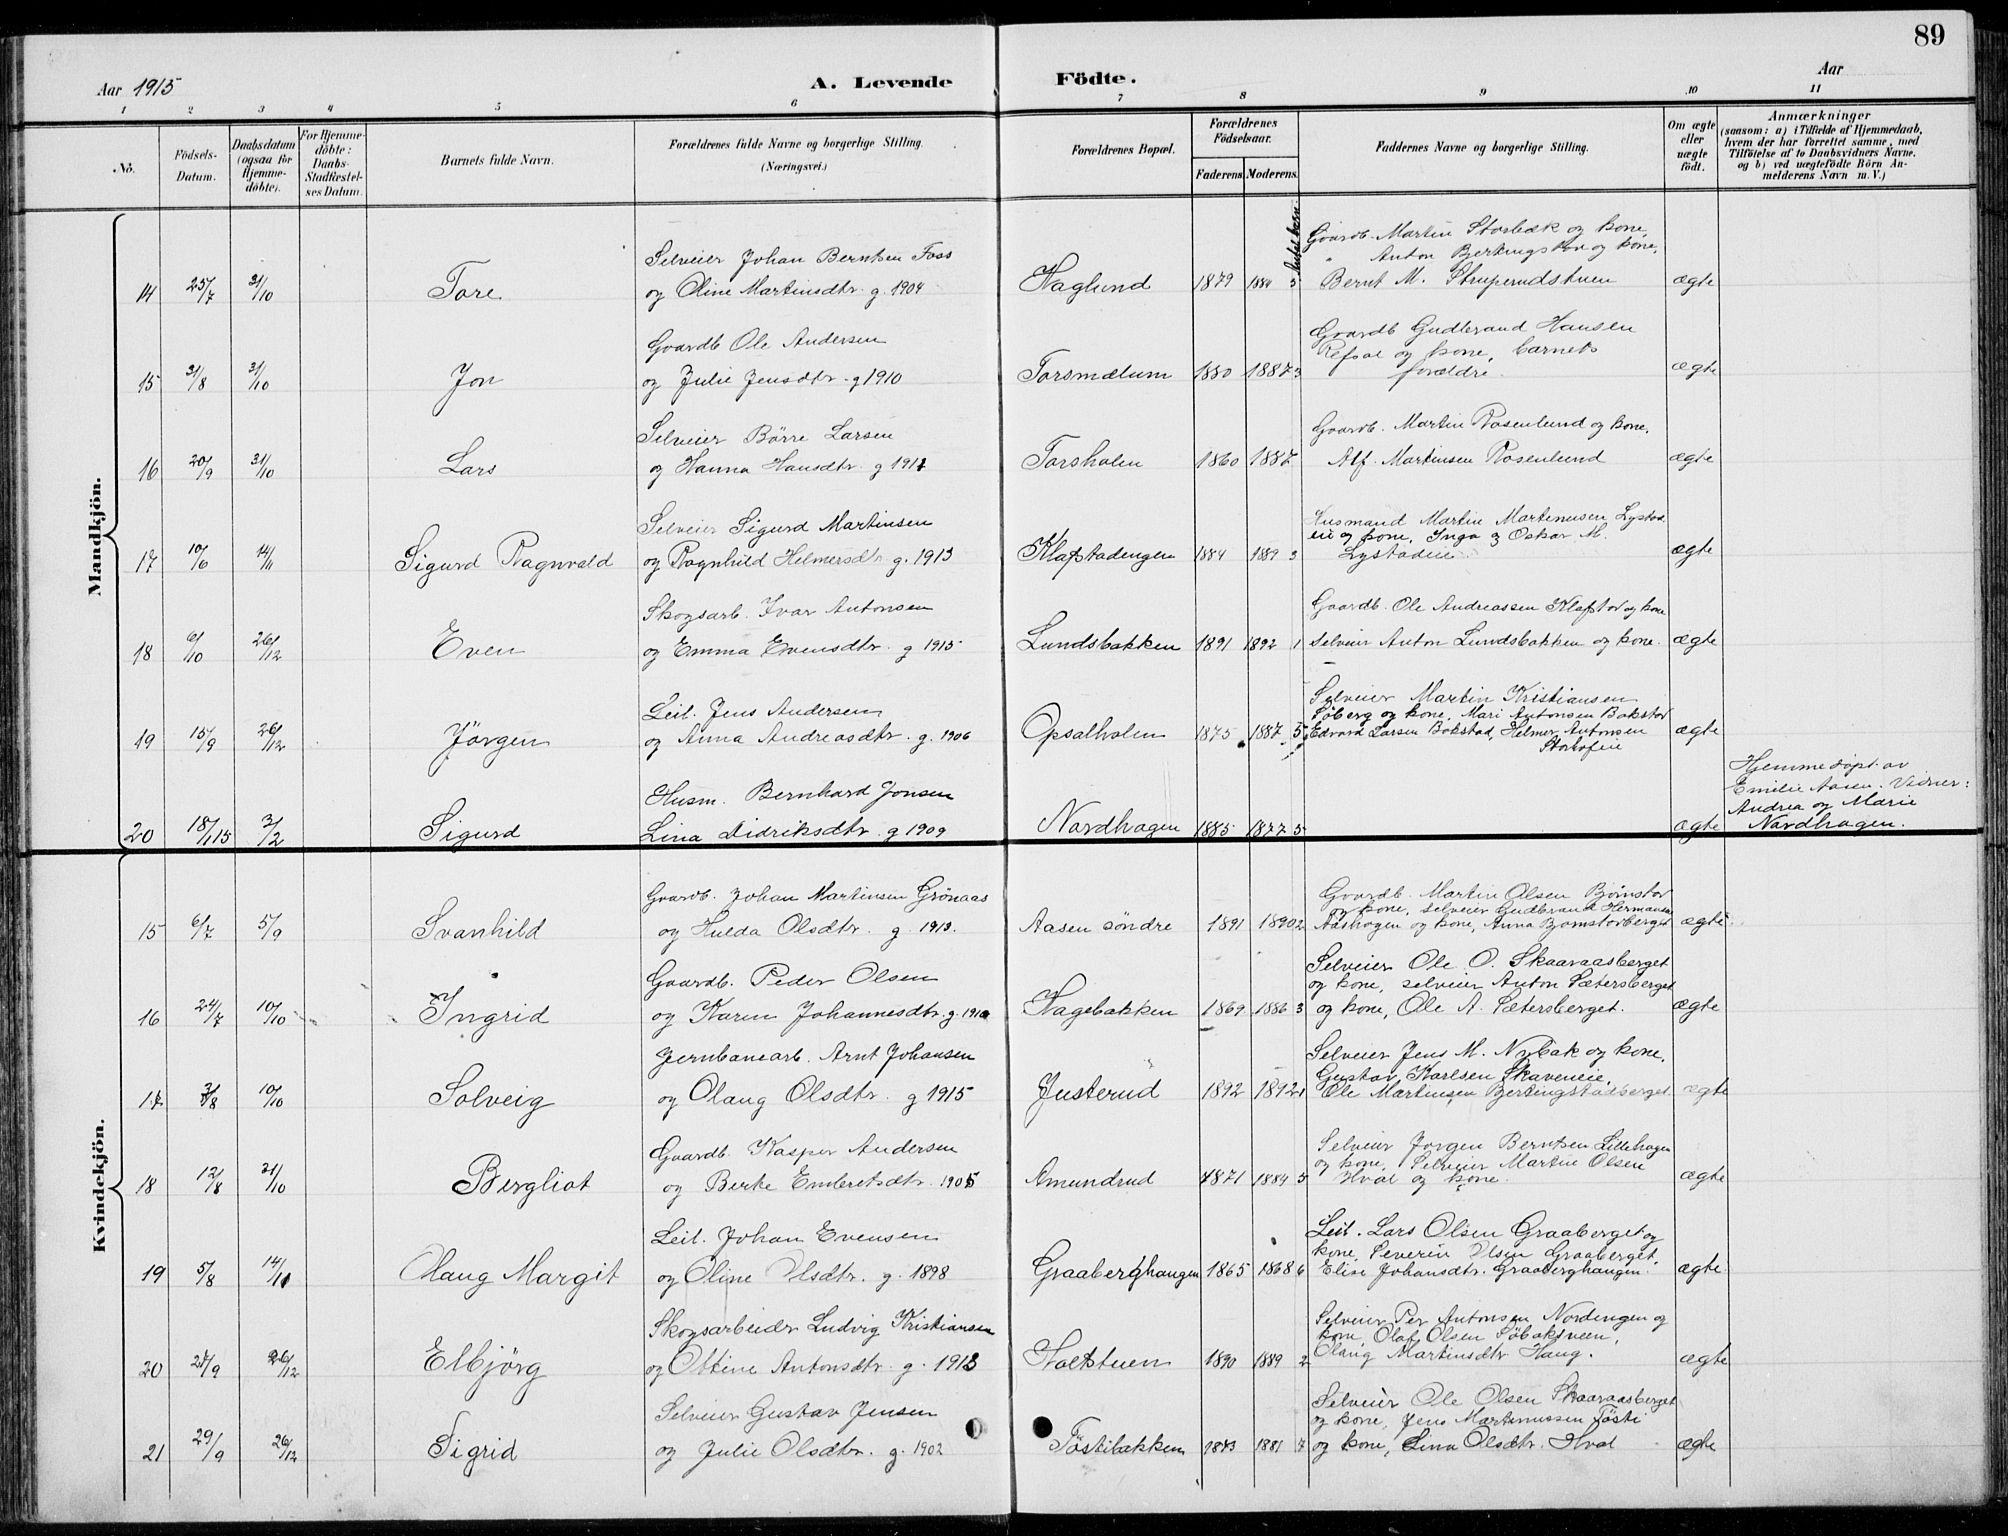 89
Aar 1915
A. Levende Födte.
Aar
1 2 3 4 5 6 7 8 9 10 11
No.
Födsels-
Datum.
Daabsdatum
(ogsaa for
Hjemme-
döbte).
For Hjemme-
döbte:
Daabs-
Stadfæstel-
ses Datum.
Barnets fulde Navn.
Forældrenes fulde Navne og borgerlige Stilling.
(Næringsvei.)
Forældrenes Bopæl.
Forældrenes
Födselsaar.
Faderens. Moderens.
Faddernes Navne og borgerlige Stilling.
Om ægte
eller
uægte
födt.
Anmærkninger
(saasom: a) i Tilfælde af Hjemmedaab,
hvem der har forrettet samme, med
Tilföielse af to Daabsvidners Navne.
og b) ved uægtefödte Börn An-
melderens Navn m. V.)
Antal barn
Mandkjön.
Selveier Johan Berntsen Foss
Gaardb. Martin Storbæk og kone,
" Anton Bertingstav og kone,
14 25/7 31/10 Tore og Oline Martinsdtr. g. 1904 Haglund 1879 1884 5 Bernt M. Struperudstuen ægte
Gaardb Ole Andersen
Gaardb Gudbrand Hansen
Refsal og kone, barnets
15 31/8 31/10 Jon og Julie Jensdtr. g 1910 Torsmælum 1880 1887 3 forældre. ægte
Selveier Börre Larsen
Gaardb. Martin Rosenlund og kone,
16 20/9 31/10 Lars og Hanna Hansdtr. g 1911 Torsholen 1860 1887 Alf. Martinsen Rosenlund ægte
Selveier Sigurd Martinsen
Husmand Martin Martinusen Lystad
eie og kone, Inga og Oskar M.
17 10/6 14/11 Sigurd Ragnvald og Ragnhild Helmersdtr. g. 1913 Klafstadengen 1884 1889 3 Lystadeie ægte
Skogsarb. Ivar Antonsen
Gaardb. Ole Andreassen Klafstad og kone
18 6/10 26/12 Even og Emma Evensdtr. g 1915 Lundsbakken 1891 1892 1 Selveier Anton Lundsbakken og kone. ægte
Leil. Jens Andersen
Selveier Martin Kristiansen
Söberg og kone, Mari Antonsen Bakstad
19 15/9 26/12 Jörgen og Anna Andreasdtr. g. 1906 Opsalholen 1875 1887 5 Edvard Larsen Bakstad, Helmer Antonsen ægte
Husm. Bernhard Jonsen
Hjemmedöpt av
Emilie Aasen. Vidner:
Andrea og Marie
20 18/1 15 3/2 Sigurd Lina Didriksdtr. g 1909 Nordhagen 1885 1877 5 ægte Nordhagen.
Kvindekjön.
Gaardb. Johan Martinsen Grönaas
Gaardb. Martin Olsen Björnstad
og kone, selveier Gudbrand Hermansen
15 6/7 5/9 Svanhild og Hulda Olsdtr. g. 1913. Aasen söndre 1891 1890 2 Aashagen og kone, Anna Bjornstadberget ægte.
Gaardb. Peder Olsen
Selveier Ole O. Skaaraasberget
og kone, selveier Anton Sætersberget
16 24/7 10/10 Ingrid og Karen Johannesdtr. g. 1910 Hagebakken 1869 1886 3 og kone, Ole A. Sætersberget. ægte
Jernbanearb. Arnt Johansen
Selveier Jens M. Nybak og kone,
Gustav Karlsen Skaveneie,
17 3/8 10/10 Solveig og Olaug Olsdtr. g 1915 Justerud 1892 1892 1 Ole Martinsen Bertingstadberget ægte
Gaardb. Kasper Andersen
Selveier Jorgen Berntsen Lillehagen
og kone, Selveier Martin Olsen
18 12/8 31/10 Bergliot og Berte Embretsdtr. 1905 Amundrud 1871 1884 5 Hval og kone. ægte
Leil. Johan Evensen
Leil. Lars Olsen Graaberget og
kone, Severin Olsen Graaberget
19 5/8 14/11 Olaug Margit og Oline Olsdtr. g. 1898 Graaberghaugen 1865 1868 6 Elise Johansdtr. Graaberghaugen. ægte
Skogsarbeider Ludvig Kristiansen
Selveier Per Antonsen Nordengen og
kone, Olaf Olsen Söbakveen,
20 27/9 26/12 Elbjörg og Ottine Antonsdtr. g. 1913 Holtstuen 1890 1889 2 Olaug Martinsdtr Haug. ægte
Selveier Gustav Jensen
Selveier Ole Olsen Skaaraasberget
og kone, Jens Martinussen Tösti
21 29/9 26/12 Sigrid og Julie Olsdtr. g. 1902 Töstibakken 1873 1881 7 og kone, Lina Olsdtr. Hval ægte